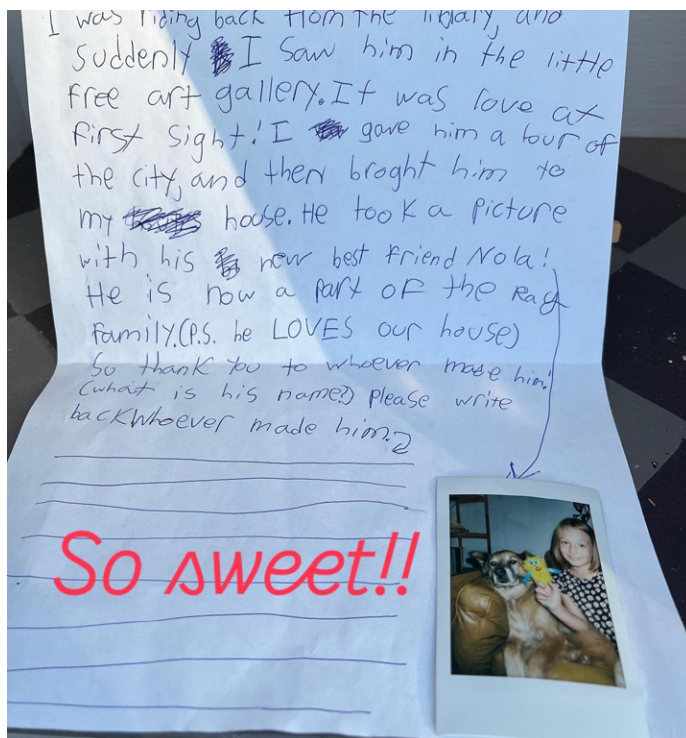 I was riding back from the library, and
suddenly I saw him in the little
free art gallery. It was love at
first sight! I gave him a tour of
the city, and then broght him to
my house. He took a picture
with his new best friend Nola!
He is now a part of the
family. (P.S. he LOVES our house)
So thank you to whoever made him!
(what is his name?) please write
back whoever made him.
So sweet!!